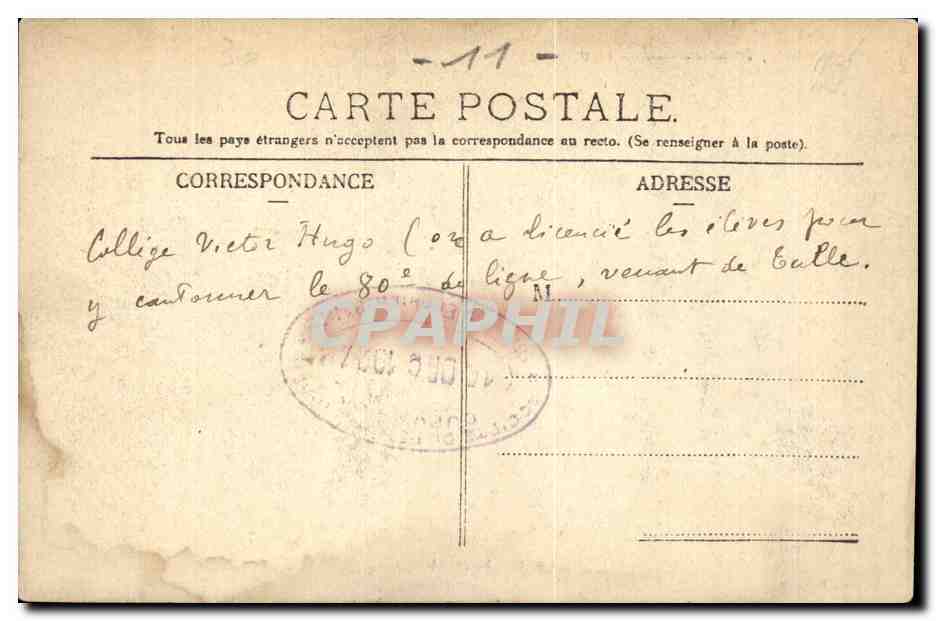 - 11 -
CARTE POSTALE.
Tous les pays étrangers n'acceptent pas la correspondance au recto. (Se renseigner à la poste).
CORRESPONDANCE
ADRESSE
Collège Victor Hugo (on a licencié les élèves pour
y cantonner le 80e de ligne, venant de Tulle.
M
CPAPHIL
DEC